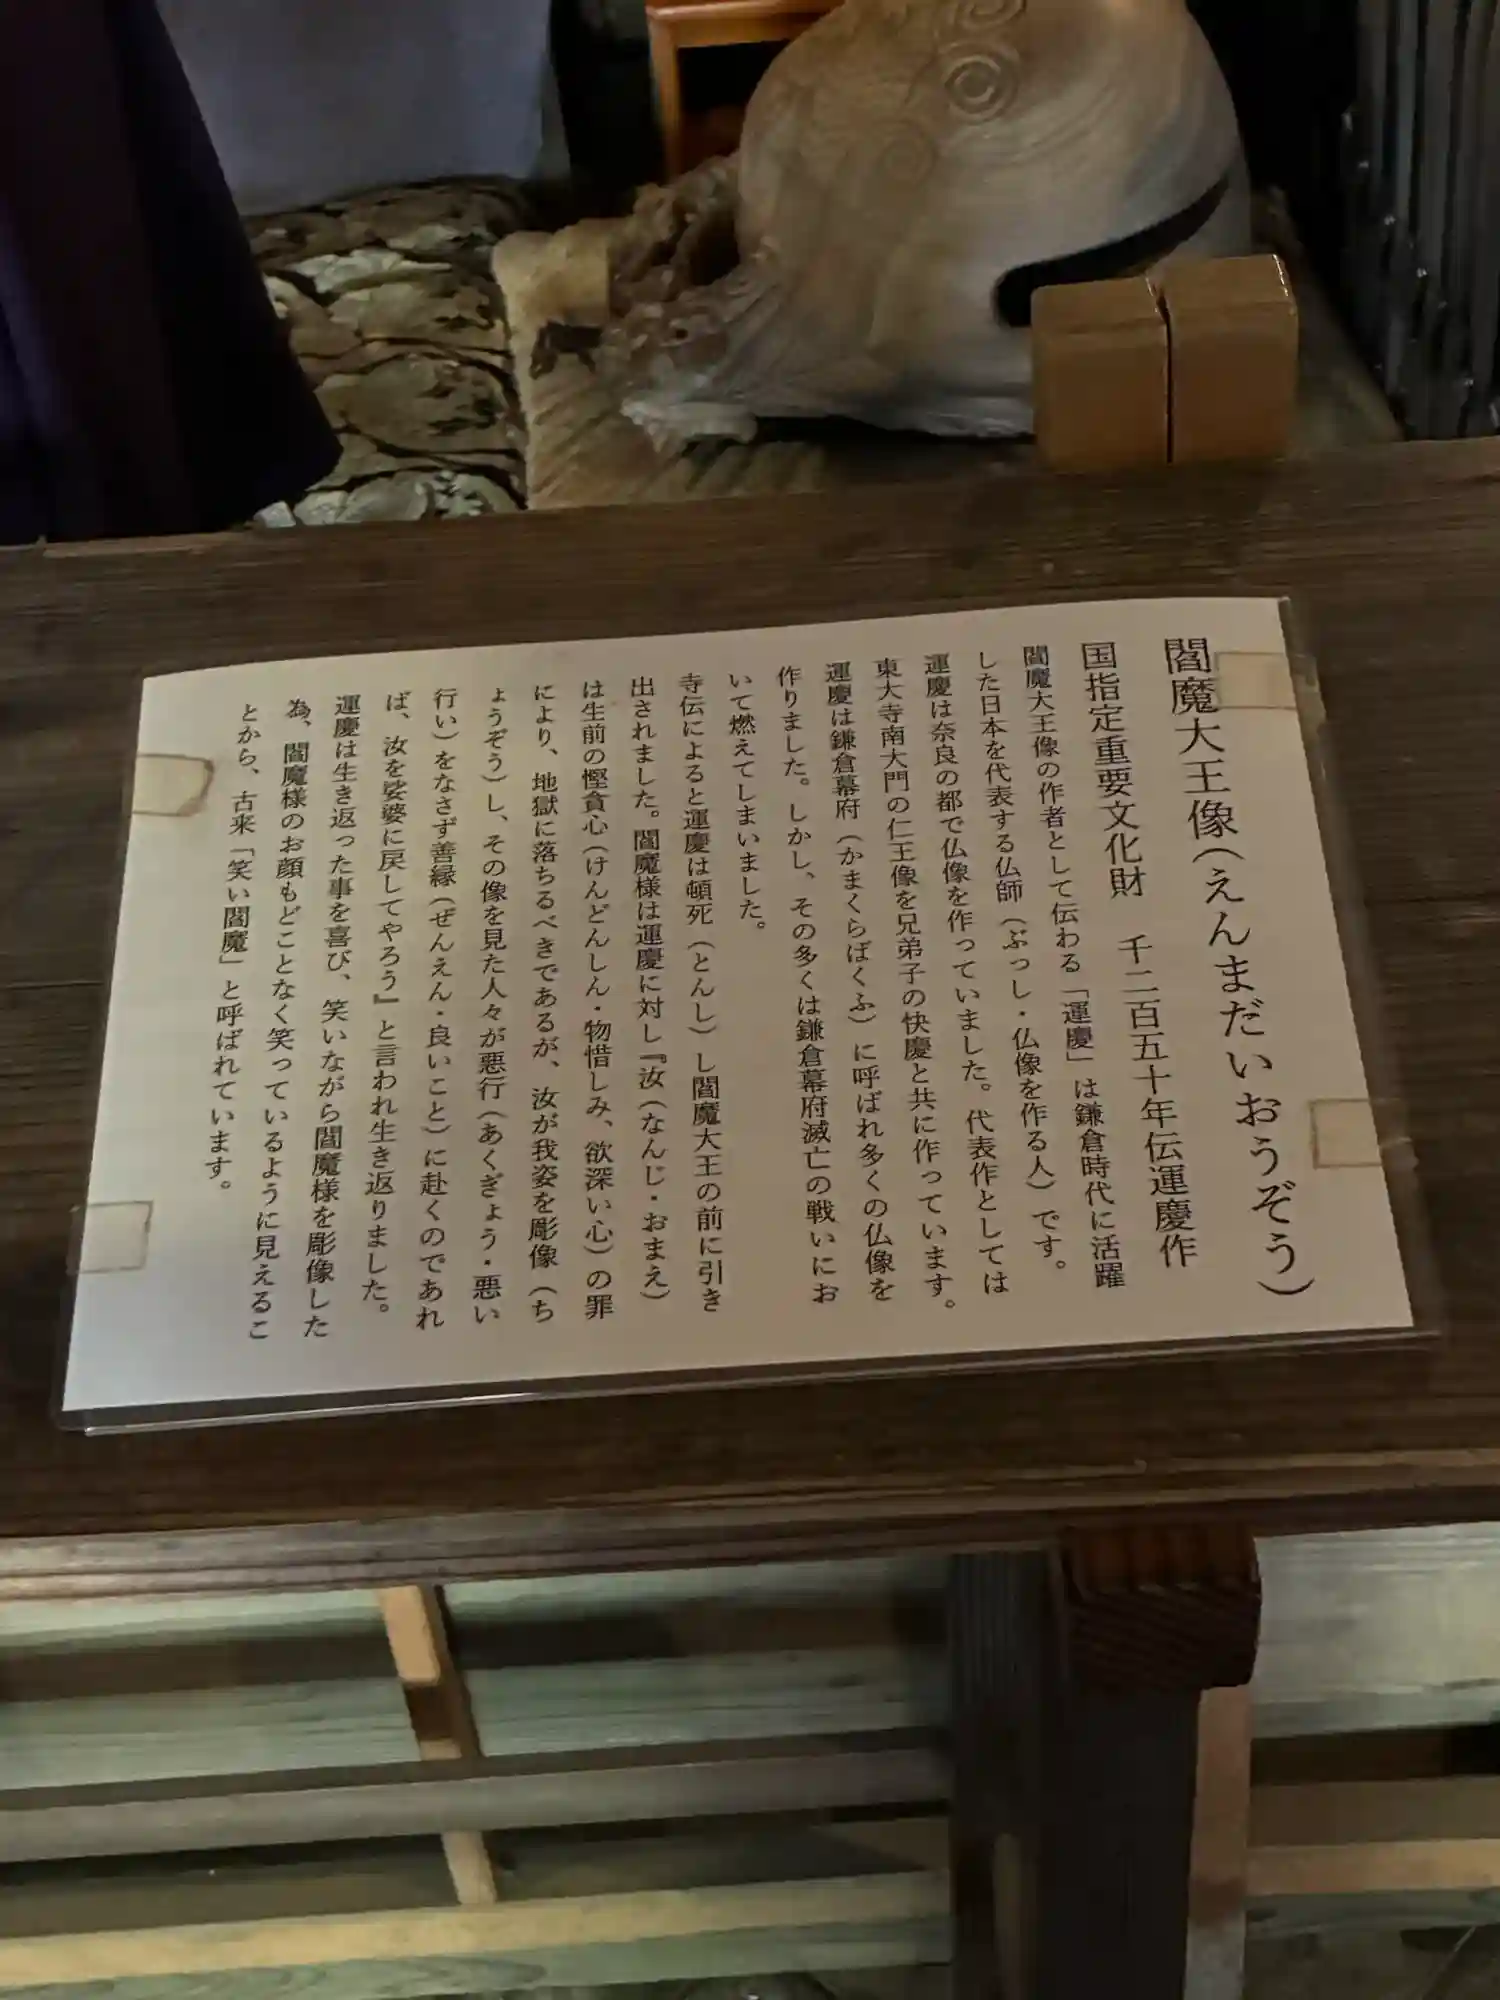 閻魔大王像(えんまだいおうぞう)
国指定重要文化財 千二百五十年伝運慶作
閻魔大王像の作者として伝わる「運慶」は鎌倉時代に活躍
した日本を代表する仏師(ぶっし・仏像を作る人)です。
運慶は奈良の都で仏像を作っていました。代表作としては
東大寺南大門の仁王像を兄弟子の快慶と共に作っています。
運慶は鎌倉幕府(かまくらばくふ)に呼ばれ多くの仏像を
作りました。しかし、その多くは鎌倉幕府滅亡の戦いにお
いて燃えてしまいました。
寺伝によると運慶は頓死(とんし)し閻魔大王の前に引き
出されました。閻魔様は運慶に対し『汝(なんじ・おまえ)
は生前の慳貪心(けんどんしん・物惜しみ、欲深い心)の罪
により、地獄に落ちるべきであるが、汝が我姿を彫像(ち
ょうぞう)し、その像を見た人々が悪行(あくぎょう・悪い
行い)をなさず善縁(ぜんえん・良いこと)に赴くのであれ
ば、汝を娑婆に戻してやろう』と言われ生き返りました。
運慶は生き返った事を喜び、笑いながら閻魔様を彫像した
為、閻魔様のお顔もどことなく笑っているように見えるこ
とから、古来「笑い閻魔」と呼ばれています。